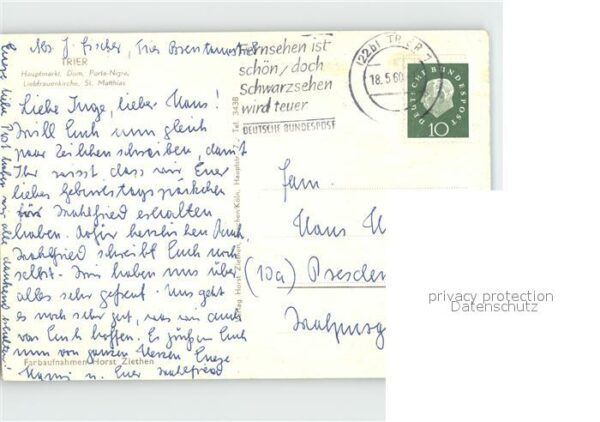 Abs. J. Fischer, Trier Brentanostr. 8
TRIER
Hauptmarkt, Dom, Porta-Nigra,
Liebfrauenkirche, St. Matthias
Liebe Inge, lieber Hans!
Will Euch nun gleich
paar Zeilchen schreiben, damit
Ihr wisst dass wir Euer
liebes Geburtstagspäckchen
für erhalten
haben. Dafür herzlichen Dank,
schreibt Euch noch
selbst. Wir haben uns über
alles sehr gefreut. Uns geht
es noch sehr gut, was wir auch
von Euch hoffen. Es grüßen Euch
nun von ganzem Herzen Eure
u. Euer
Eure liebe Post haben wir alle dankend erhalten!
Farbaufnahmen Horst Ziethen
Verlag Horst Ziethen, Köln, Hauptstr. Tel. 3438
Fernsehen ist
schön, doch
Schwarzsehen
wird teuer
DEUTSCHE BUNDESPOST
(22b) TRIER 1
18.5.60
DEUTSCHE BUNDESPOST
10
Fam.
Hans
(10a) Dresden
privacy protection
Datenschutz